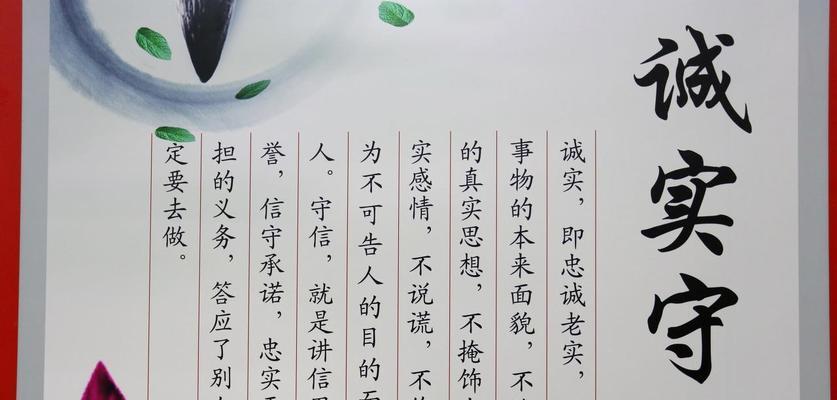 诚实守
诚实，即忠诚老实，
事物的本来面貌，不
的真实思想，不掩饰
实感情，不说谎，不
为不可告人的目的而
人。守信，就是讲信
誉，信守承诺，忠实
担的义务，答应了别
定要去做。